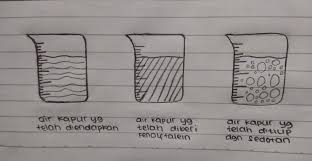 air kapur yg
telah diendapkan
air kapur yg
telah diberi
fenolftalein
air kapur yg
telah ditiup
dgn sedotan